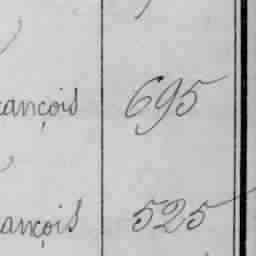 rançois 695
ançois 525